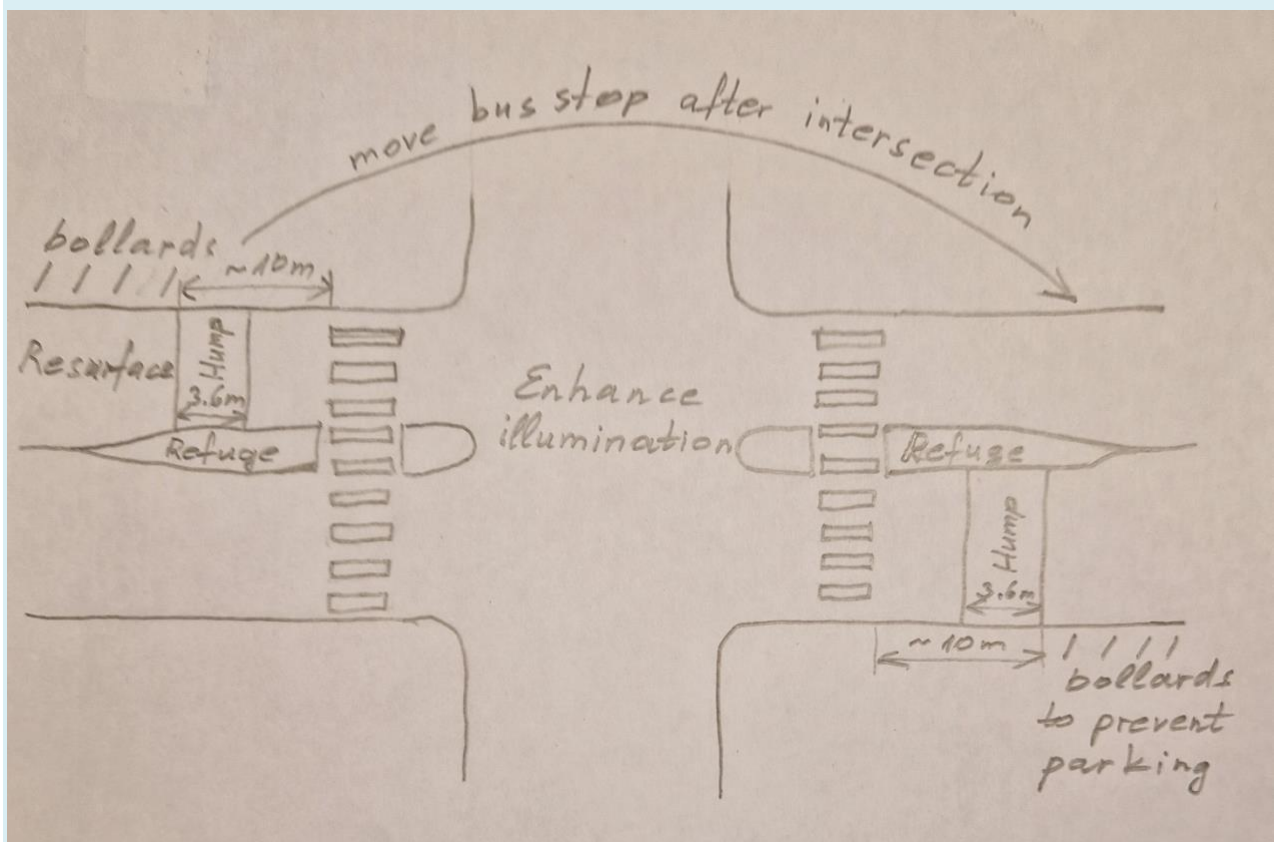 move bus stop after intersection
bollards
~10m
Resurface
Hump
3.6m
Refuge
Enhance
illumination
Refuge
Hump
3.6m
~10m
bollards
to prevent
parking